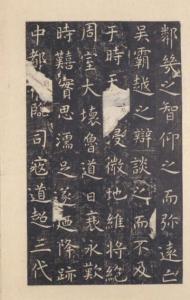 鄰幾之智仰之而弥遠亡
吳霸越之辯談之而不及
于時天浸微地維將絶
周室大壞魯道日衰永歎
時艱實思濡足遂降跡
中都臨司寇道超三代